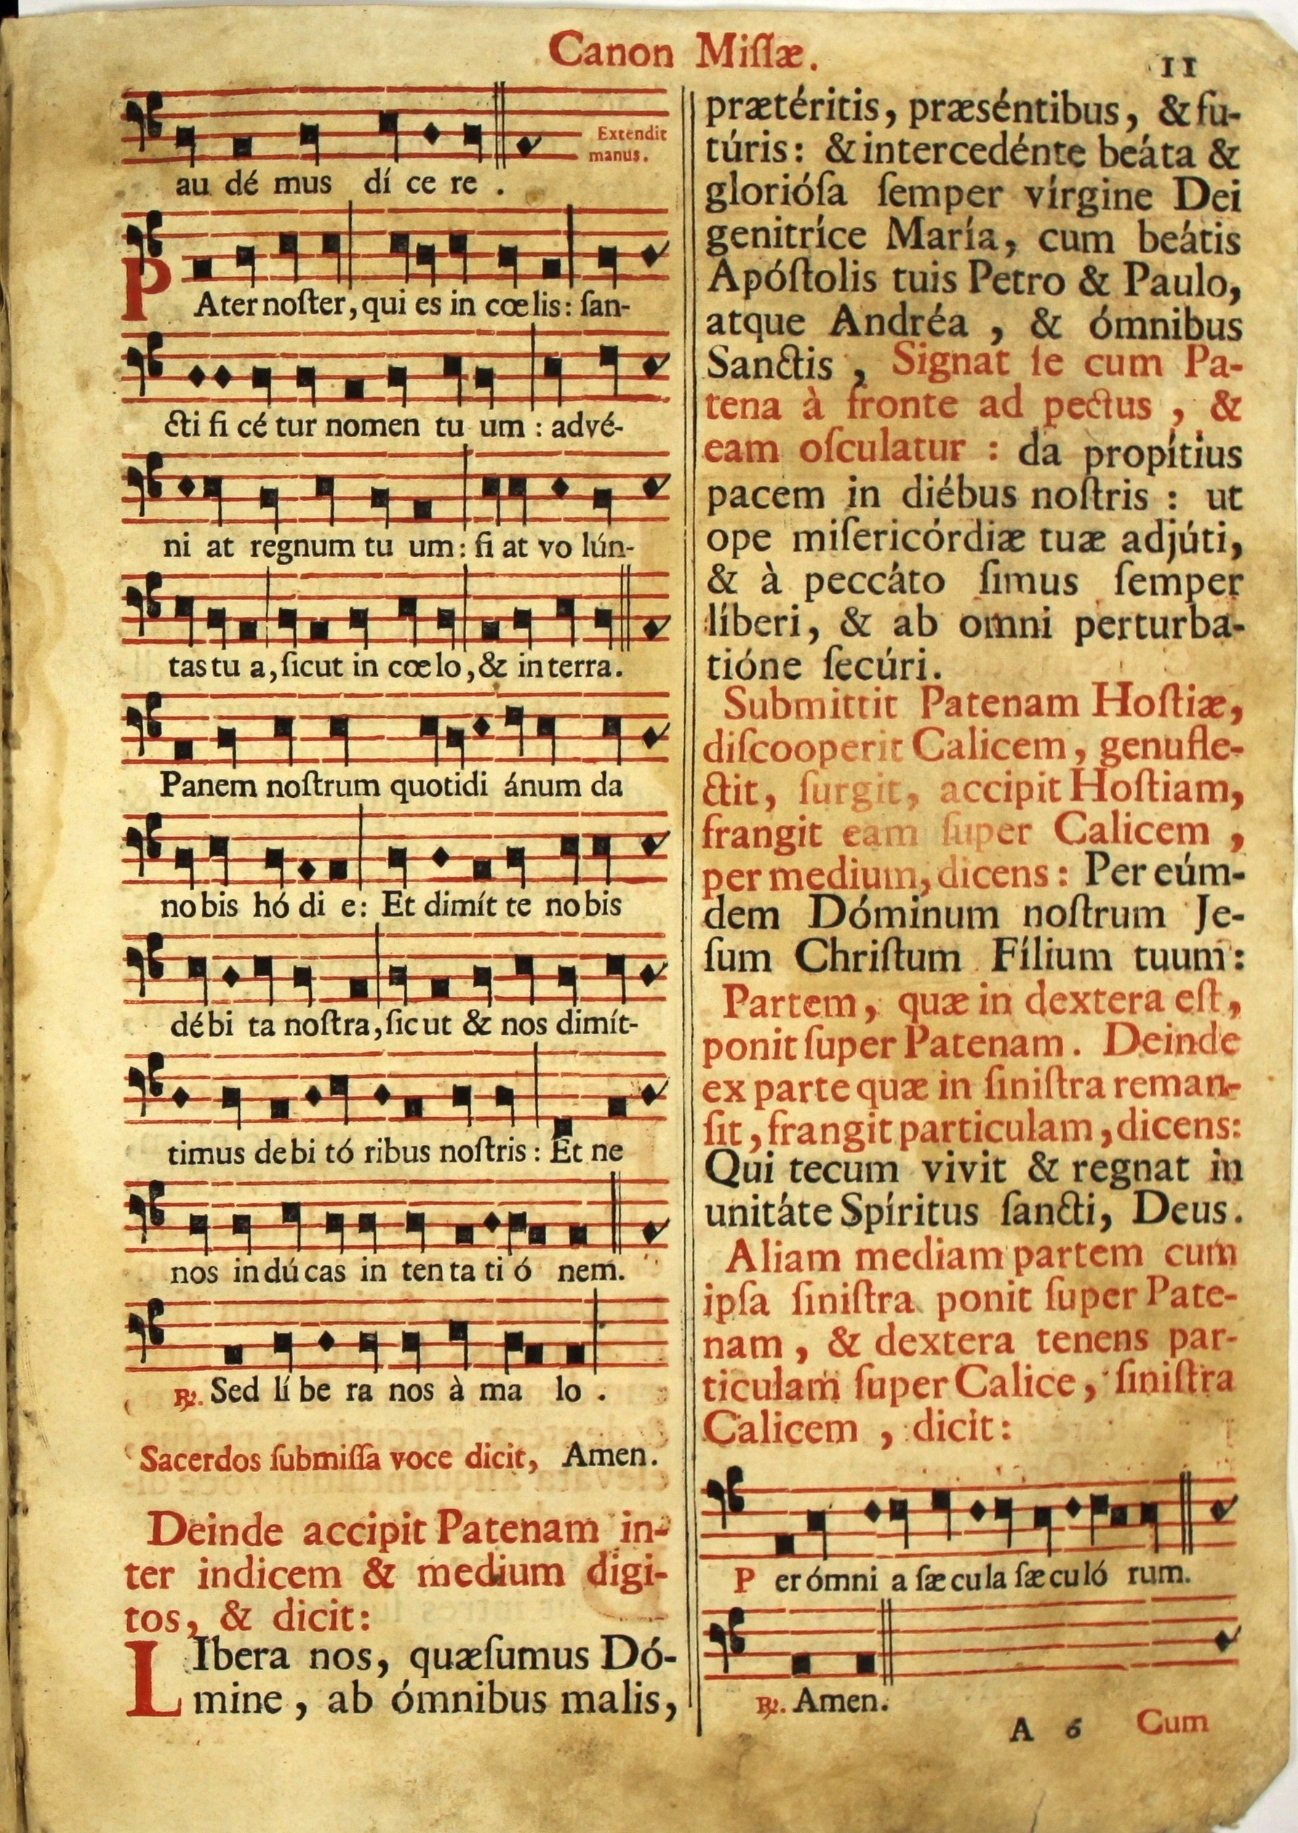 Canon Miſſæ.
11
Extendit
manus.
au dé mus dí ce re .
PAter noſter, qui es in cœlis: ſan-
cti fi cé tur nomen tu um : advé-
ni at regnum tu um: fi at vo lún-
tas tu a, ſicut in cœlo, & in terra.
Panem noſtrum quotidi ánum da
nobis hó di e: Et dimít te nobis
débi ta noſtra, ſicut & nos dimít-
timus debi tó ribus noſtris : Et ne
nos indúcas in ten ta ti ó nem.
℟. Sed lí be ra nos à ma lo .
Sacerdos ſubmiſſa voce dicit, Amen.
Deinde accipit Patenam in-
ter indicem & medium digi-
tos, & dicit:
LIbera nos, quæſumus Dó-
mine , ab ómnibus malis,
prætéritis, præséntibus, & fu-
túris: & intercedénte beáta &
glorióſa ſemper vírgine Dei
genitríce María, cum beátis
Apóſtolis tuis Petro & Paulo,
atque Andréa , & ómnibus
Sanctis , Signat ſe cum Pa-
tena à fronte ad pectus , &
eam oſculatur : da propítius
pacem in diébus noſtris : ut
ope miſericórdiæ tuæ adjúti,
& à peccáto ſimus ſemper
líberi, & ab omni perturba-
tióne ſecúri.
Submittit Patenam Hoſtiæ,
diſcooperit Calicem, genufle-
ctit, ſurgit, accipit Hoſtiam,
frangit eam ſuper Calicem ,
per medium, dicens: Per eúm-
dem Dóminum noſtrum Je-
ſum Chriſtum Fílium tuum:
Partem, quæ in dextera eſt,
ponit ſuper Patenam. Deinde
ex parte quæ in ſiniſtra reman-
ſit, frangit particulam, dicens:
Qui tecum vivit & regnat in
unitáte Spíritus ſancti, Deus.
Aliam mediam partem cum
ipſa ſiniſtra ponit ſuper Pate-
nam , & dextera tenens par-
ticulam ſuper Calice, ſiniſtra
Calicem , dicit:
P er ómni a ſæcula ſæculó rum.
℟. Amen.
A 6 Cum